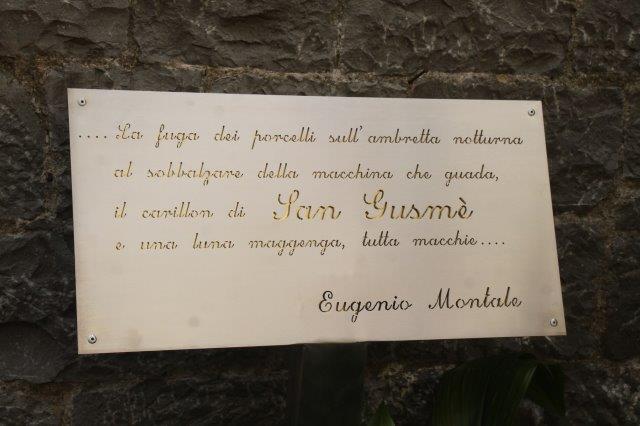 .... La fuga dei porcelli sull'ambretta notturna
al sobbalzare della macchina che guada,
il carillon di San Gusmè
e una luna maggenga, tutta macchie....
Eugenio Montale